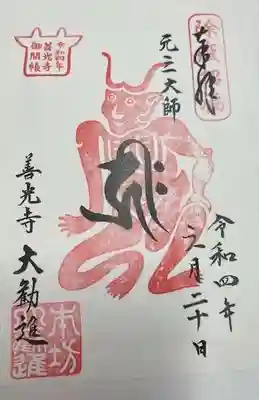 奉拝
元三大師
令和四年
六月二十日
善光寺
大勧進
令和四年
善光寺
御開帳
本坊